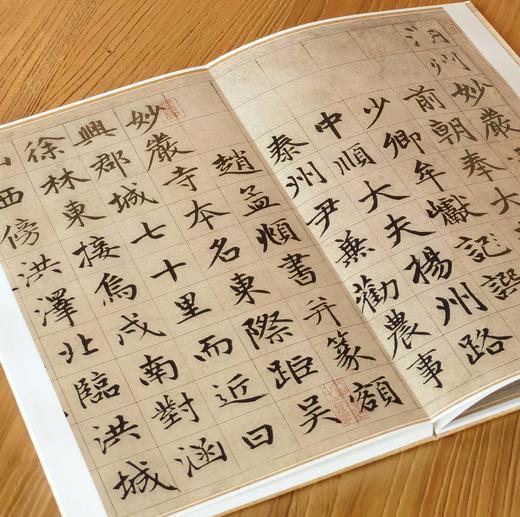 湖州妙嚴
前朝奉大
少卿牟巘記譔
中順大夫揚州路
泰州尹兼勸農事
趙孟頫書并篆額
妙嚴寺本名東際距吳
興郡城七十里而近曰
徐林東接烏戍南對涵
山西傍洪澤北臨洪城